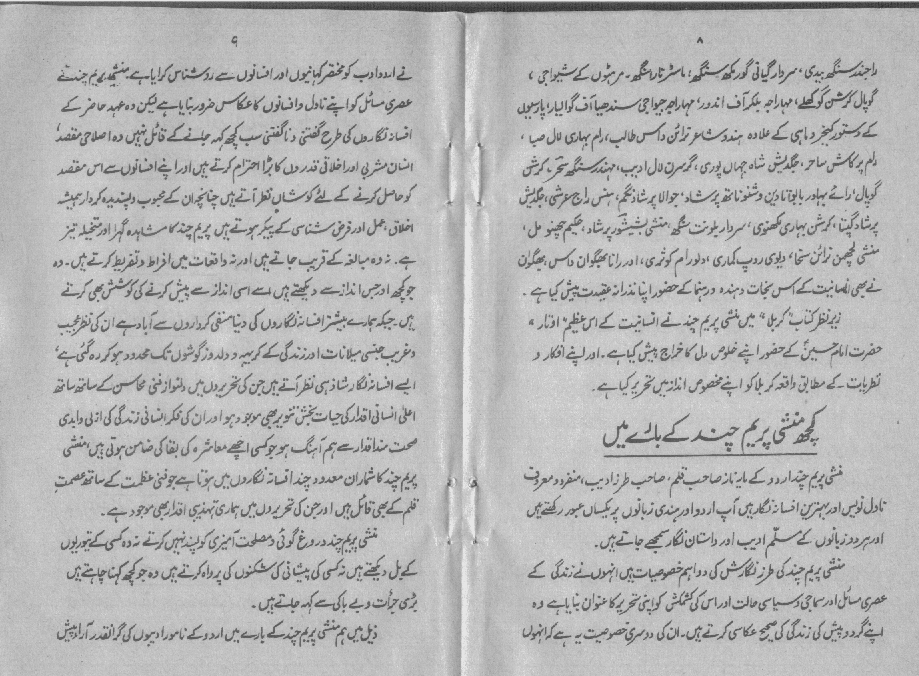 ۸
راجندر سنگھ بیدی، سردار گیانی گورمکھ سنگھ، ماسٹر تارا سنگھ۔ مرہٹوں کے شیواجی،
گوپال کرشن گوکھلے، مہاراجہ ہلکر آف اندور، مہاراجہ جیواجی سندھیا آف گوالیار، پارسیوں
کے دستور کیخبرو ماہی کے علاوہ ہندو شاعر نرائن داس طالب، رام بہاری لال صبا،
رام پرکاش ساحر، جگدیش شاہ جہاں پوری، گرسرن لال ادیب، مہندر سنگھ سحر، کرشن
گوپال، رائے بہادر بابو اتا دین وشنو ناتھ پرشاد، حوالا پرشاد نگم، ہنس راج عرشی، جگدیش
پرشاد گپتا، کرشن بہاری لکھنوی، سردار بلونت سنگھ، منشی بشیشور پرشاد، حکیم چھنو مل،
منشی لچھمن نرائن سخا، دیوی روپ کماری، دلو رام کوثری، اور رانا بھگوان داس بھگوان
نے بھی انسانیت کے اس نجات دہندہ و رہنما کے حضور اپنا نذرانہ عقیدت پیش کیا ہے۔
زیر نظر کتاب "کربلا" میں منشی پریم چند نے انسانیت کے اس عظیم "اوتار"
حضرت امام حسینؑ کے حضور اپنے خلوص دل کا خراج پیش کیا ہے۔ اور اپنے افکار و
نظریات کے مطابق واقعہ کربلا کو اپنے مخصوص انداز میں تحریر کیا ہے۔
کچھ منشی پریم چند کے بارے میں
منشی پریم چند اردو کے مایہ ناز صاحب قلم، صاحب طرز ادیب، منفرد و معروف
ناول نویس اور بہترین افسانہ نگار ہیں آپ اردو اور ہندی زبانوں پر یکساں عبور رکھتے ہیں
اور ہر دو زبانوں کے مسلّم ادیب اور داستان نگار سمجھے جاتے ہیں۔
منشی پریم چند کی طرز نگارش کی دو اہم خصوصیات ہیں انہوں نے زندگی کے
عصری مسائل اور سماجی و سیاسی حالت اور اس کی کشمکش کو اپنی تحریر کا عنوان بنایا ہے وہ
اپنے گرد و پیش کی زندگی کی صحیح عکاسی کرتے ہیں۔ ان کی دوسری خصوصیت یہ ہے کہ انہوں
۹
نے اردو ادب کو مختصر کہانیوں اور افسانوں سے روشناس کرایا ہے۔ منشی پریم چند نے
عصری مسائل کو اپنے ناول و افسانوں کا عکاس ضرور بنایا ہے لیکن وہ عہد حاضر کے
افسانہ نگاروں کی طرح گفتنی و ناگفتنی سب کچھ کہہ جانے کے قائل نہیں وہ اصلاحی مقصد،
انسان مشربی اور اخلاقی قدروں کا بڑا احترام کرتے ہیں اور اپنے افسانوں سے اس مقصد
کو حاصل کرنے کے لئے کوشاں نظر آتے ہیں چنانچہ ان کے محبوب و پسندیدہ کردار ہمیشہ
اخلاق، عمل اور فرض شناسی کے پیکر ہوتے ہیں پریم چند کا مشاہدہ گہرا اور متخیلہ تیز
ہے۔ نہ وہ مبالغہ کے قریب جاتے ہیں اور نہ واقعات میں افراط و تفریط کرتے ہیں۔ وہ
جو کچھ اور جس انداز سے دیکھتے ہیں اسے اسی انداز سے پیش کرنے کی کوشش بھی کرتے
ہیں۔ جبکہ ہمارے بیشتر افسانہ نگاروں کی دنیا منفی کرداروں سے آباد ہے ان کی نظر عجیب
و غریب جنسی میلانات اور زندگی کے کریہہ و دلدوز گوشوں تک محدود ہو کر رہ گئی ہے،
ایسے افسانہ نگار شاذ ہی نظر آتے ہیں جن کی تحریروں میں دلنواز فنی محاسن کے ساتھ ساتھ
اعلیٰ انسانی اقدار کی حیات بخش تنویر بھی موجود ہو اور ان کی فکر انسانی زندگی کی ازلی و ابدی
صحت مند اقدار سے ہم آہنگ ہو جو کسی اچھے معاشرہ کی بقا کی ضامن ہوتی ہیں، منشی
پریم چند کا شمار ان معدودے چند افسانہ نگاروں میں ہوتا ہے جو فنی عظمت کے ساتھ عصمت
قلم کے بھی قائل ہیں اور جن کی تحریروں میں ہماری تہذیبی اقدار بھی موجود ہے۔
منشی پریم چند دروغ گوئی و مصلحت آمیزی کو پسند نہیں کرتے نہ وہ کسی کے تیوریوں
کے بل دیکھتے ہیں نہ کسی کی پیشانی کی شکنوں کی پرواہ کرتے ہیں وہ جو کچھ کہنا چاہتے ہیں
بڑی جرأت و بے باکی سے کہہ جاتے ہیں۔
ذیل میں ہم منشی پریم چند کے بارے میں اردو کے نامور ادیبوں کی گرانقدر آراء پیش